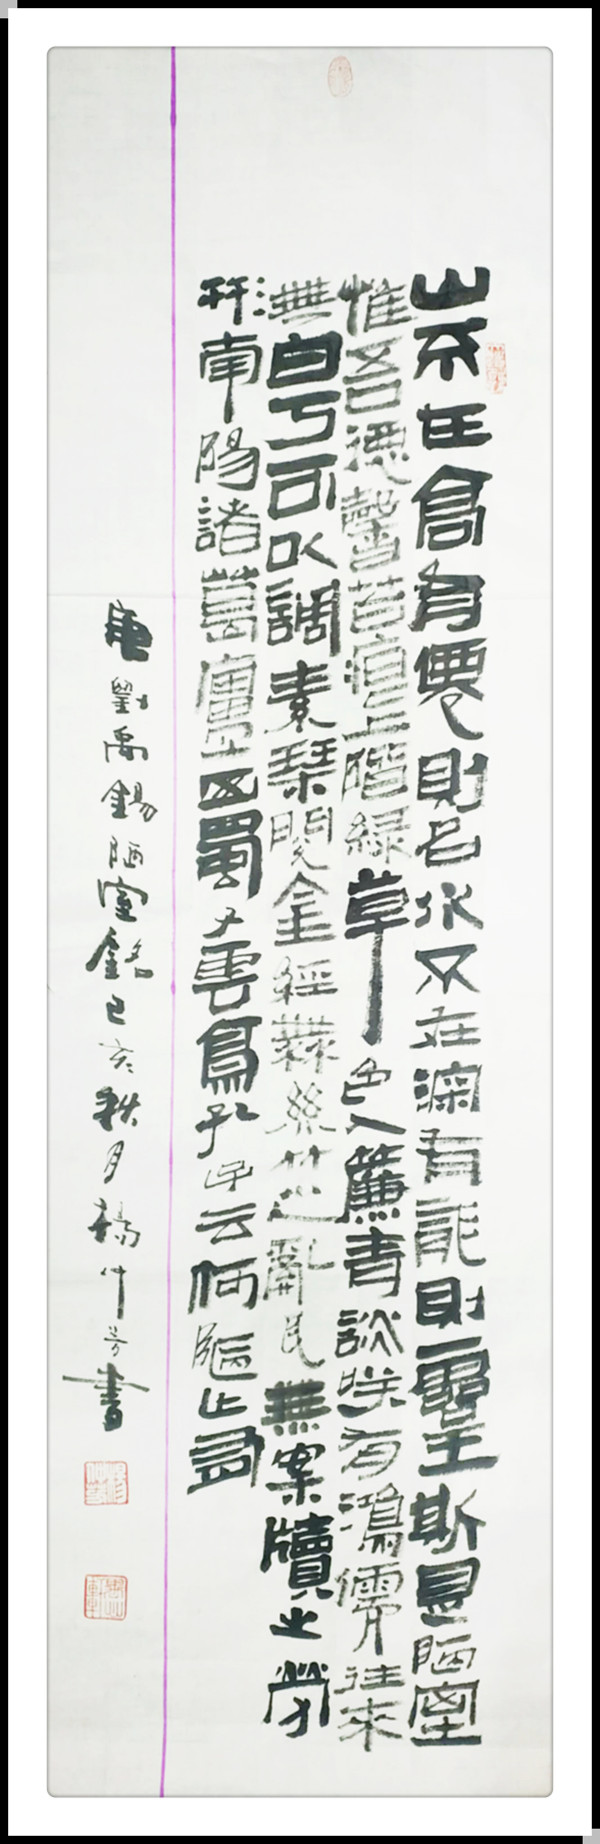 山不在高有僊則名水不在深有龍則靈斯是陋室
惟吾德馨苔痕上階綠草色入簾青談咲有鴻儒往來
無白丁可以調素琹閱金經無絲竹之亂耳無案牘之勞
形南陽諸葛廬西蜀子雲亭孔子云何陋之有
唐劉禹錫陋室銘己亥秋月楊仲芳書